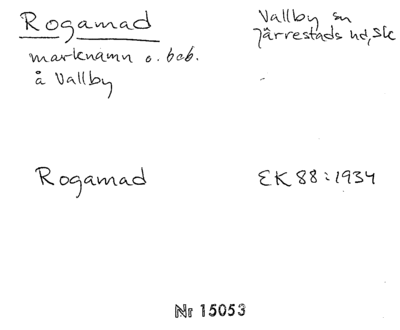 Rogamad
Vallby sn
Järrestads hd, Sk
marknamn o. beb.
å Vallby
Rogamad
EK 88:1934
Nr 15053